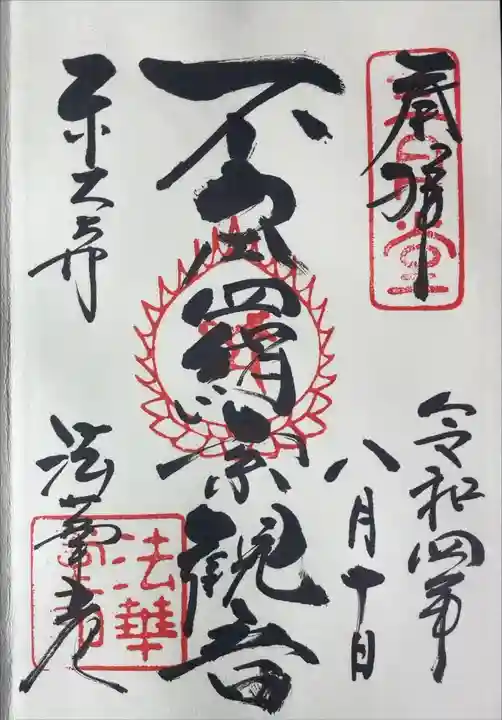 奉拝
令和四年
八月十日
不空羂索観音
東大寺
法華堂
法華堂